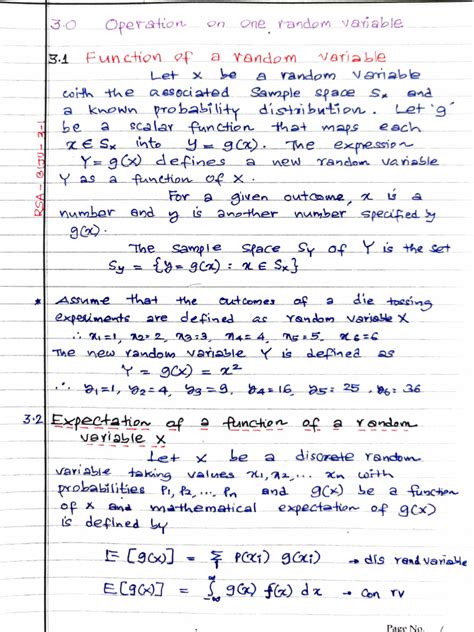 3.0 Operation on one random variable
3.1 Function of a random variable
Let X be a random variable
with the associated sample space Sx and
a known probability distribution. Let 'g'
be a scalar function that maps each
x ∈ Sx into y = g(x). The expression
Y = g(x) defines a new random variable
Y as a function of X.
For a given outcome, x is a
number and y is another number specified by
g(x).
The sample space Sy of Y is the set
Sy = {y = g(x) : x ∈ Sx}
* Assume that the outcomes of a die tossing
experiments are defined as random variable X
∴ x1=1, x2=2, x3=3, x4=4, x5=5, x6=6
The new random variable Y is defined as
Y = g(x) = x²
∴ y1=1, y2=4, y3=9, y4=16, y5=25, y6=36
3.2 Expectation of a function of a random
variable X
Let X be a discrete random
variable taking values x1, x2, ... xn with
probabilities P1, P2, ... Pn and g(x) be a function
of X and mathematical expectation of g(x)
is defined by
E [g(x)] = Σ P(xi) g(xi) → dis rand variable
i
E [g(x)] = ∫ g(x) f(x) dx → con rv
-∞ ∞
Page No. 1